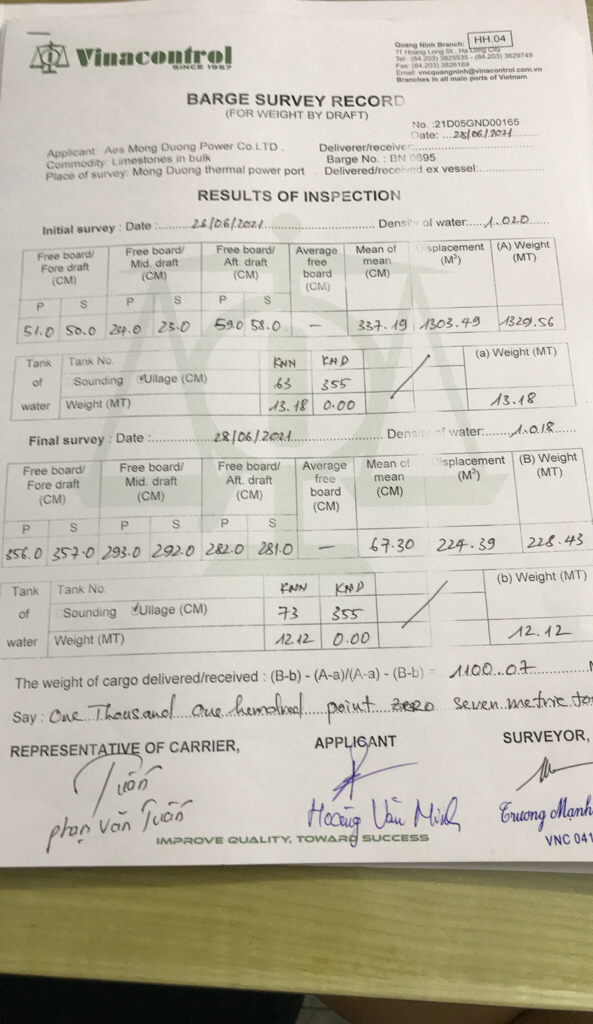 Vinacontrol
SINCE 1957
HH.04
Quang Ninh Branch:
11 Hoang Long St., Ha Long City
Tel: (84.203) 3825535 - (84.203) 3829749
Fax: (84.203) 3826169
Email: vncquangninh@vinacontrol.com.vn
Branches in all main ports of Vietnam
BARGE SURVEY RECORD
(FOR WEIGHT BY DRAFT)
No. :21D05GND00165
Date: ...28/06/2021
Applicant: Aes Mong Duong Power Co.LTD . Deliverer/receiver:
Commodity: Limestones in bulk Barge No. : BN 0695
Place of survey: Mong Duong thermal power port Delivered/received ex vessel:
RESULTS OF INSPECTION
Initial survey : Date : 26/06/2021 Density of water: 1.020
Free board/ Fore draft (CM) Free board/ Mid. draft (CM) Free board/ Aft. draft (CM) Average free board (CM) Mean of mean (CM) isplacement (M³) (A) Weight (MT)
P S P S P S
51.0 50.0 24.0 23.0 59.0 58.0 — 337.19 1303.49 1329.56
Tank Tank No. KNN KND (a) Weight (MT)
of Sounding Ullage (CM) 63 355
water Weight (MT) 13.18 0.00 13.18
Final survey : Date : 28/06/2021 Density of water: 1.018
Free board/ Fore draft (CM) Free board/ Mid. draft (CM) Free board/ Aft. draft (CM) Average free board (CM) Mean of mean (CM) isplacement (M³) (B) Weight (MT)
P S P S P S
356.0 357.0 293.0 292.0 282.0 281.0 — 67.30 224.39 228.43
Tank Tank No. KNN KND (b) Weight (MT)
of Sounding Ullage (CM) 73 355
water Weight (MT) 12.12 0.00 12.12
The weight of cargo delivered/received : (B-b) - (A-a)/(A-a) - (B-b) = 1100.07
Say : One Thousand One hendred point zero seven metric to
REPRESENTATIVE OF CARRIER, APPLICANT SURVEYOR,
Tuấn
phan Văn Tuấn Hoàng Văn Minh Trương Mạnh
IMPROVE QUALITY, TOWARD SUCCESS
VNC 041